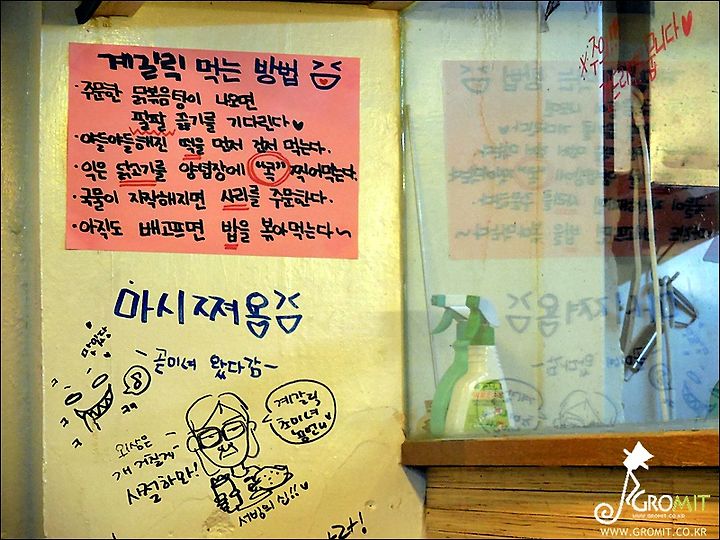 계갈릭 먹는 방법
·주문한 닭볶음탕이 나오면
팔팔 끓기를 기다린다♥
·야들야들해진 떡을 먼저 건져 먹는다.
·익은 닭고기를 양념장에 "콕" 찍어먹는다.
·국물이 자작해지면 사리를 주문한다.
·아직도 배고프면 밥을 볶아먹는다~
마시쪄욤
맛있당
~곧미녀 왔다감~
계갈릭
초미녀
외상은
개 거절게~
사절하마!
서빙의 신!!
GROMIT
WWW.GROMIT.CO.KR
WWW.GROMIT.CO.KR